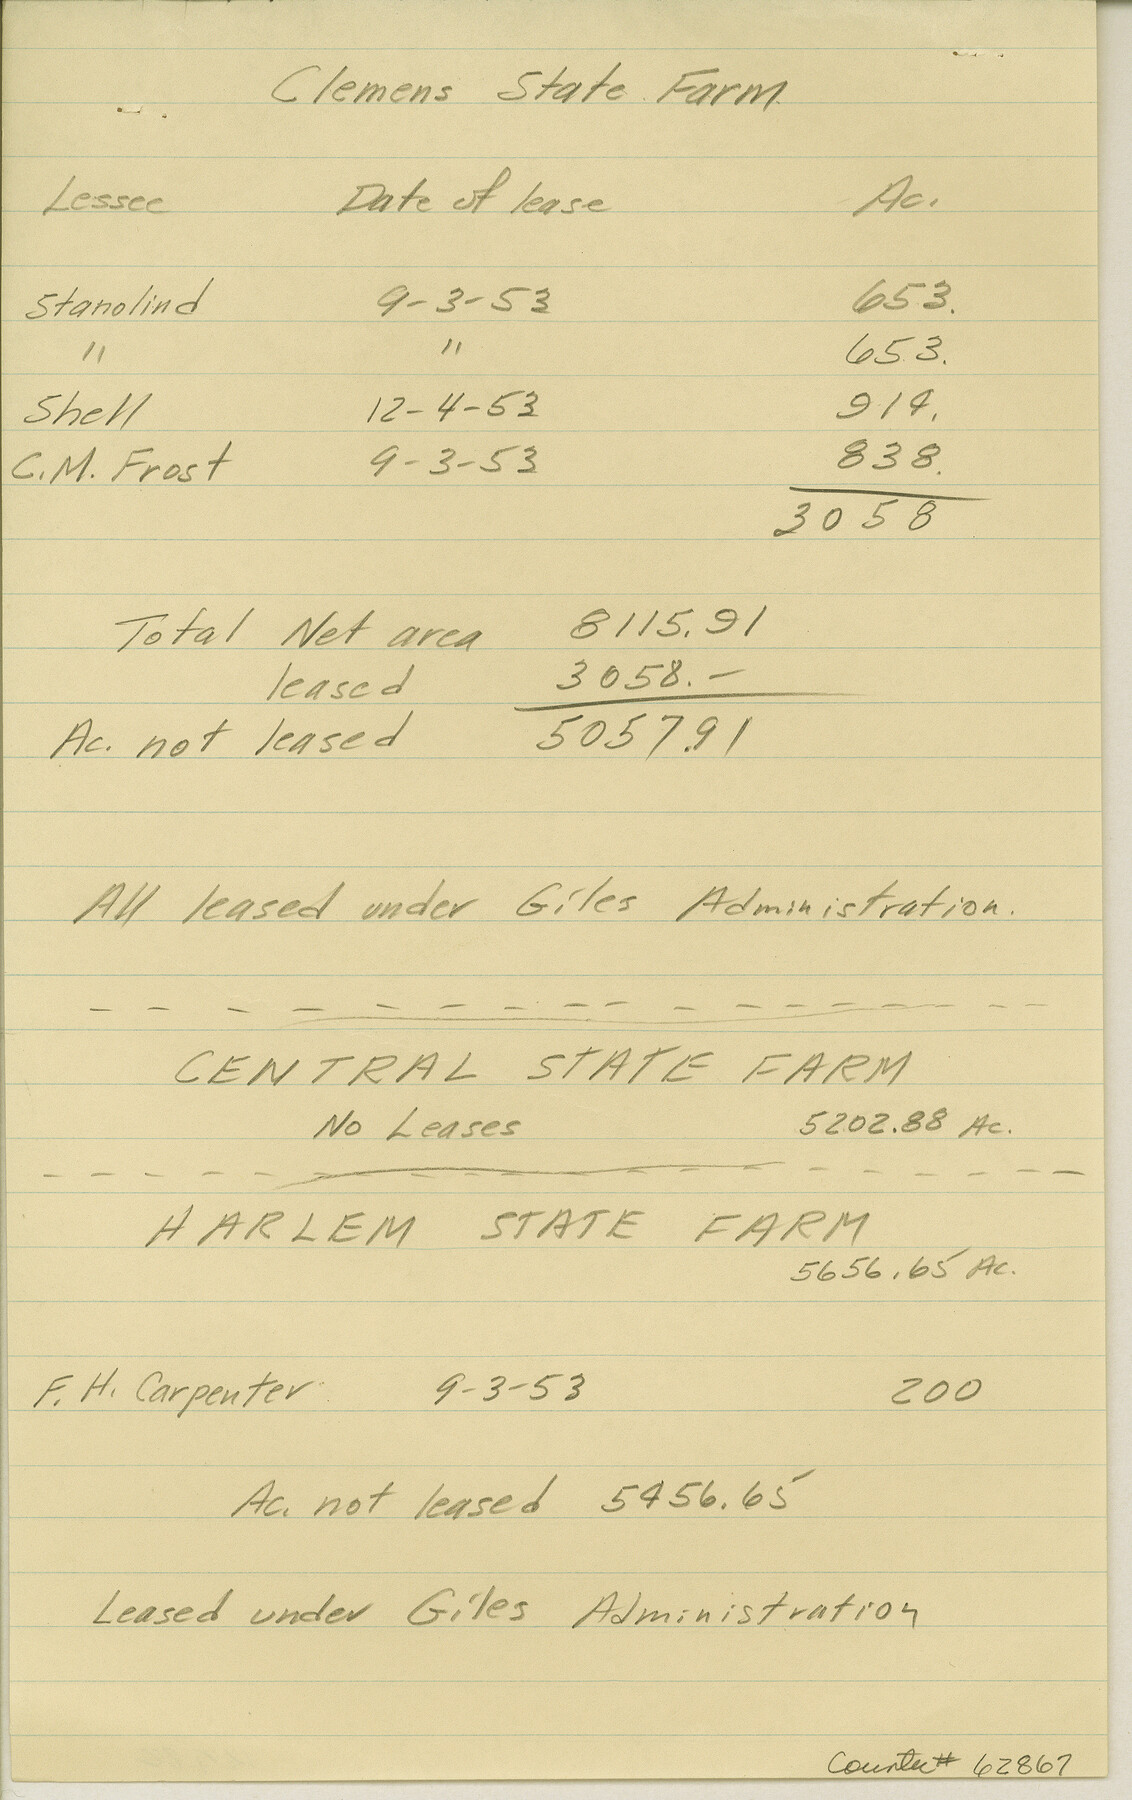 Clemens State Farm
Lessee Date of lease Ac.
Stanolind 9-3-53 653.
" " 653.
Shell 12-4-53 914.
C.M. Frost 9-3-53 838.
3058
Total Net area 8115.91
leased 3058.-
Ac. not leased 5057.91
All leased under Giles Administration.
CENTRAL STATE FARM
No Leases 5202.88 Ac.
HARLEM STATE FARM
5656.65 Ac.
F. H. Carpenter 9-3-53 200
Ac. not leased 5456.65
Leased under Giles Administration
Counter # 62867